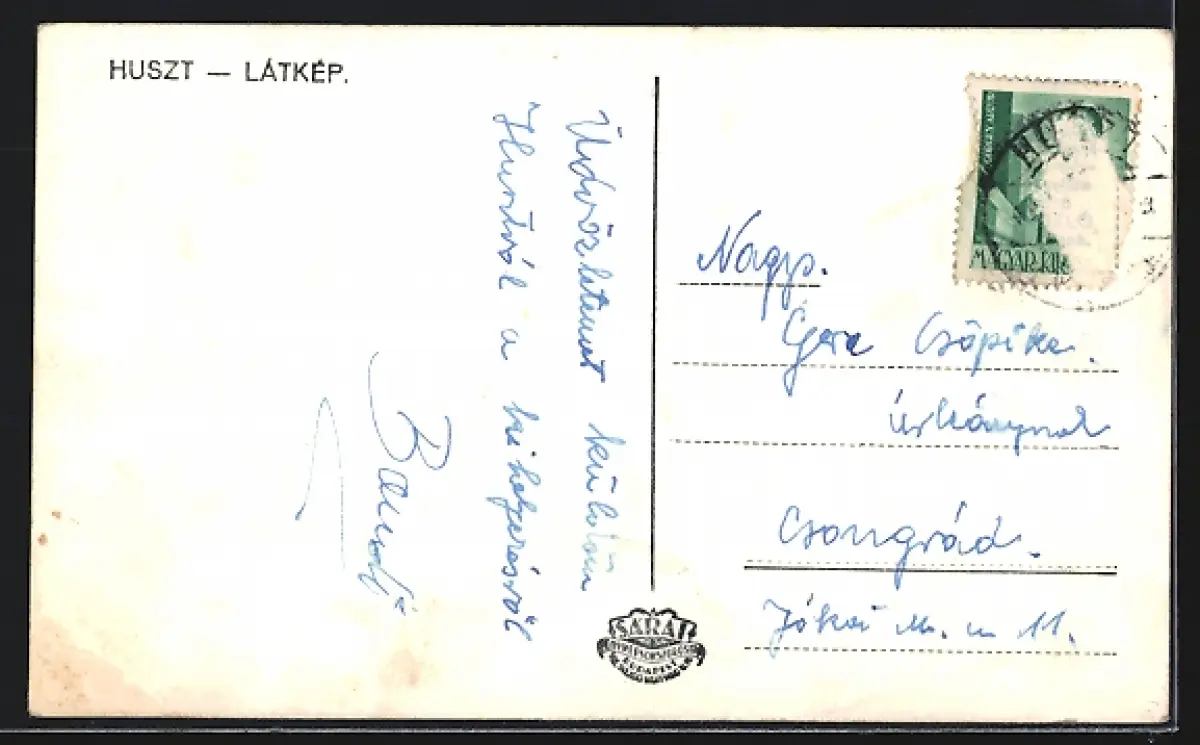 HUSZT — LÁTKÉP.
Üdvözletemet küldöm
Husztról a
Bandi
MAGYAR KIR
HUSZT
Nagys.
Gere Csöpike
úrleánynak
Csongrád.
Jókai M. u 11.
BUDAPEST